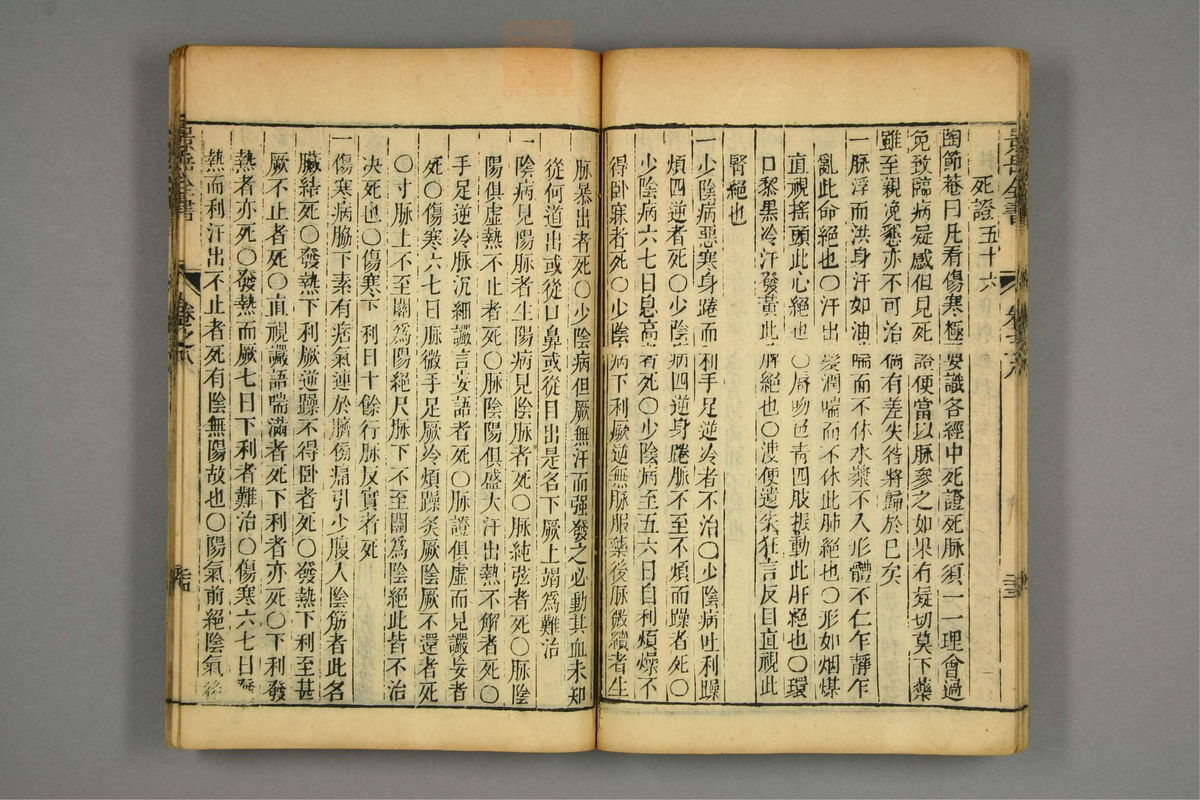 死證五十六
陶節菴曰凡看傷寒極要識各經中死證死脉須一一理會過
免致臨病疑惑但見死證便當以脉參之如果有疑切莫下藥
雖至親浼懇亦不可治倘有差失咎將歸於巳矣
一脉浮而洪身汗如油喘而不休水漿不入形體不仁乍靜乍
亂此命絕也〇汗出髮潤喘而不休此肺絕也〇形如烟煤
直視搖頭此心絕也〇唇吻色青四肢振動此肝絕也〇環
口黎黑冷汗發黃此脾絕也〇溲便遺失狂言反目直視此
腎絕也
一少陰病惡寒身踡而利手足逆冷者不治〇少陰病吐利躁
煩四逆者死〇少陰病四逆身踡脈不至不煩而躁者死〇
少陰病六七日息高者死〇少陰病至五六日自利煩燥不
得卧寐者死〇少陰病下利厥逆無脉服藥後脉微續者生
脉暴出者死〇少陰病但厥無汗而强發之必動其血未知
從何道出或從口鼻或從目出是名下厥上竭爲難治
一陰病見陽脉者生陽病見陰脉者死〇脉純弦者死〇脉陰
陽俱虛熱不止者死〇脉陰陽俱盛大汗出熱不解者死〇
手足逆冷脉沉細讝言妄語者死〇脉證俱虛而見讝妄者
死〇傷寒六七日脉微手足厥冷煩躁灸厥陰厥不還者死
〇寸脉上不至關爲陽絕尺脉下不至關爲陰絕此皆不治
决死也〇傷寒下利日十餘行脉反實者死
一傷寒病脇下素有痞氣連於臍傷痛引少腹入陰筋者此名
臟結死〇發熱下利厥逆躁不得卧者死〇發熱下利至甚
厥不止者死〇直視讝語喘滿者死下利者亦死〇下利發
熱者亦死〇發熱而厥七日下利者難治〇傷寒六七日發
熱而利汗出不止者死有陰無陽故也〇陽氣前絕陰氣後
景岳全書
卷之八
景岳全書
卷之八